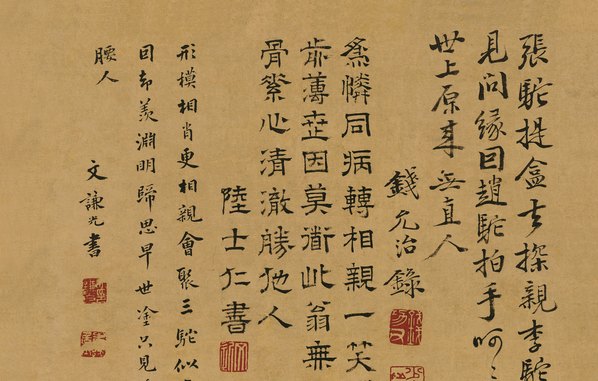 張駝提盒去探親李駝
見問緣囙趙駝拍手呵〻
世上原來無直人
錢允治錄
為憐同病轉相親一笑
歬薄世因莫衟此翁無
骨素心清澈勝他人
陸士仁書
形模相肖更相親會聚三駝似
囙却羨淵明歸思早世塗只見
腰人
文謙光書